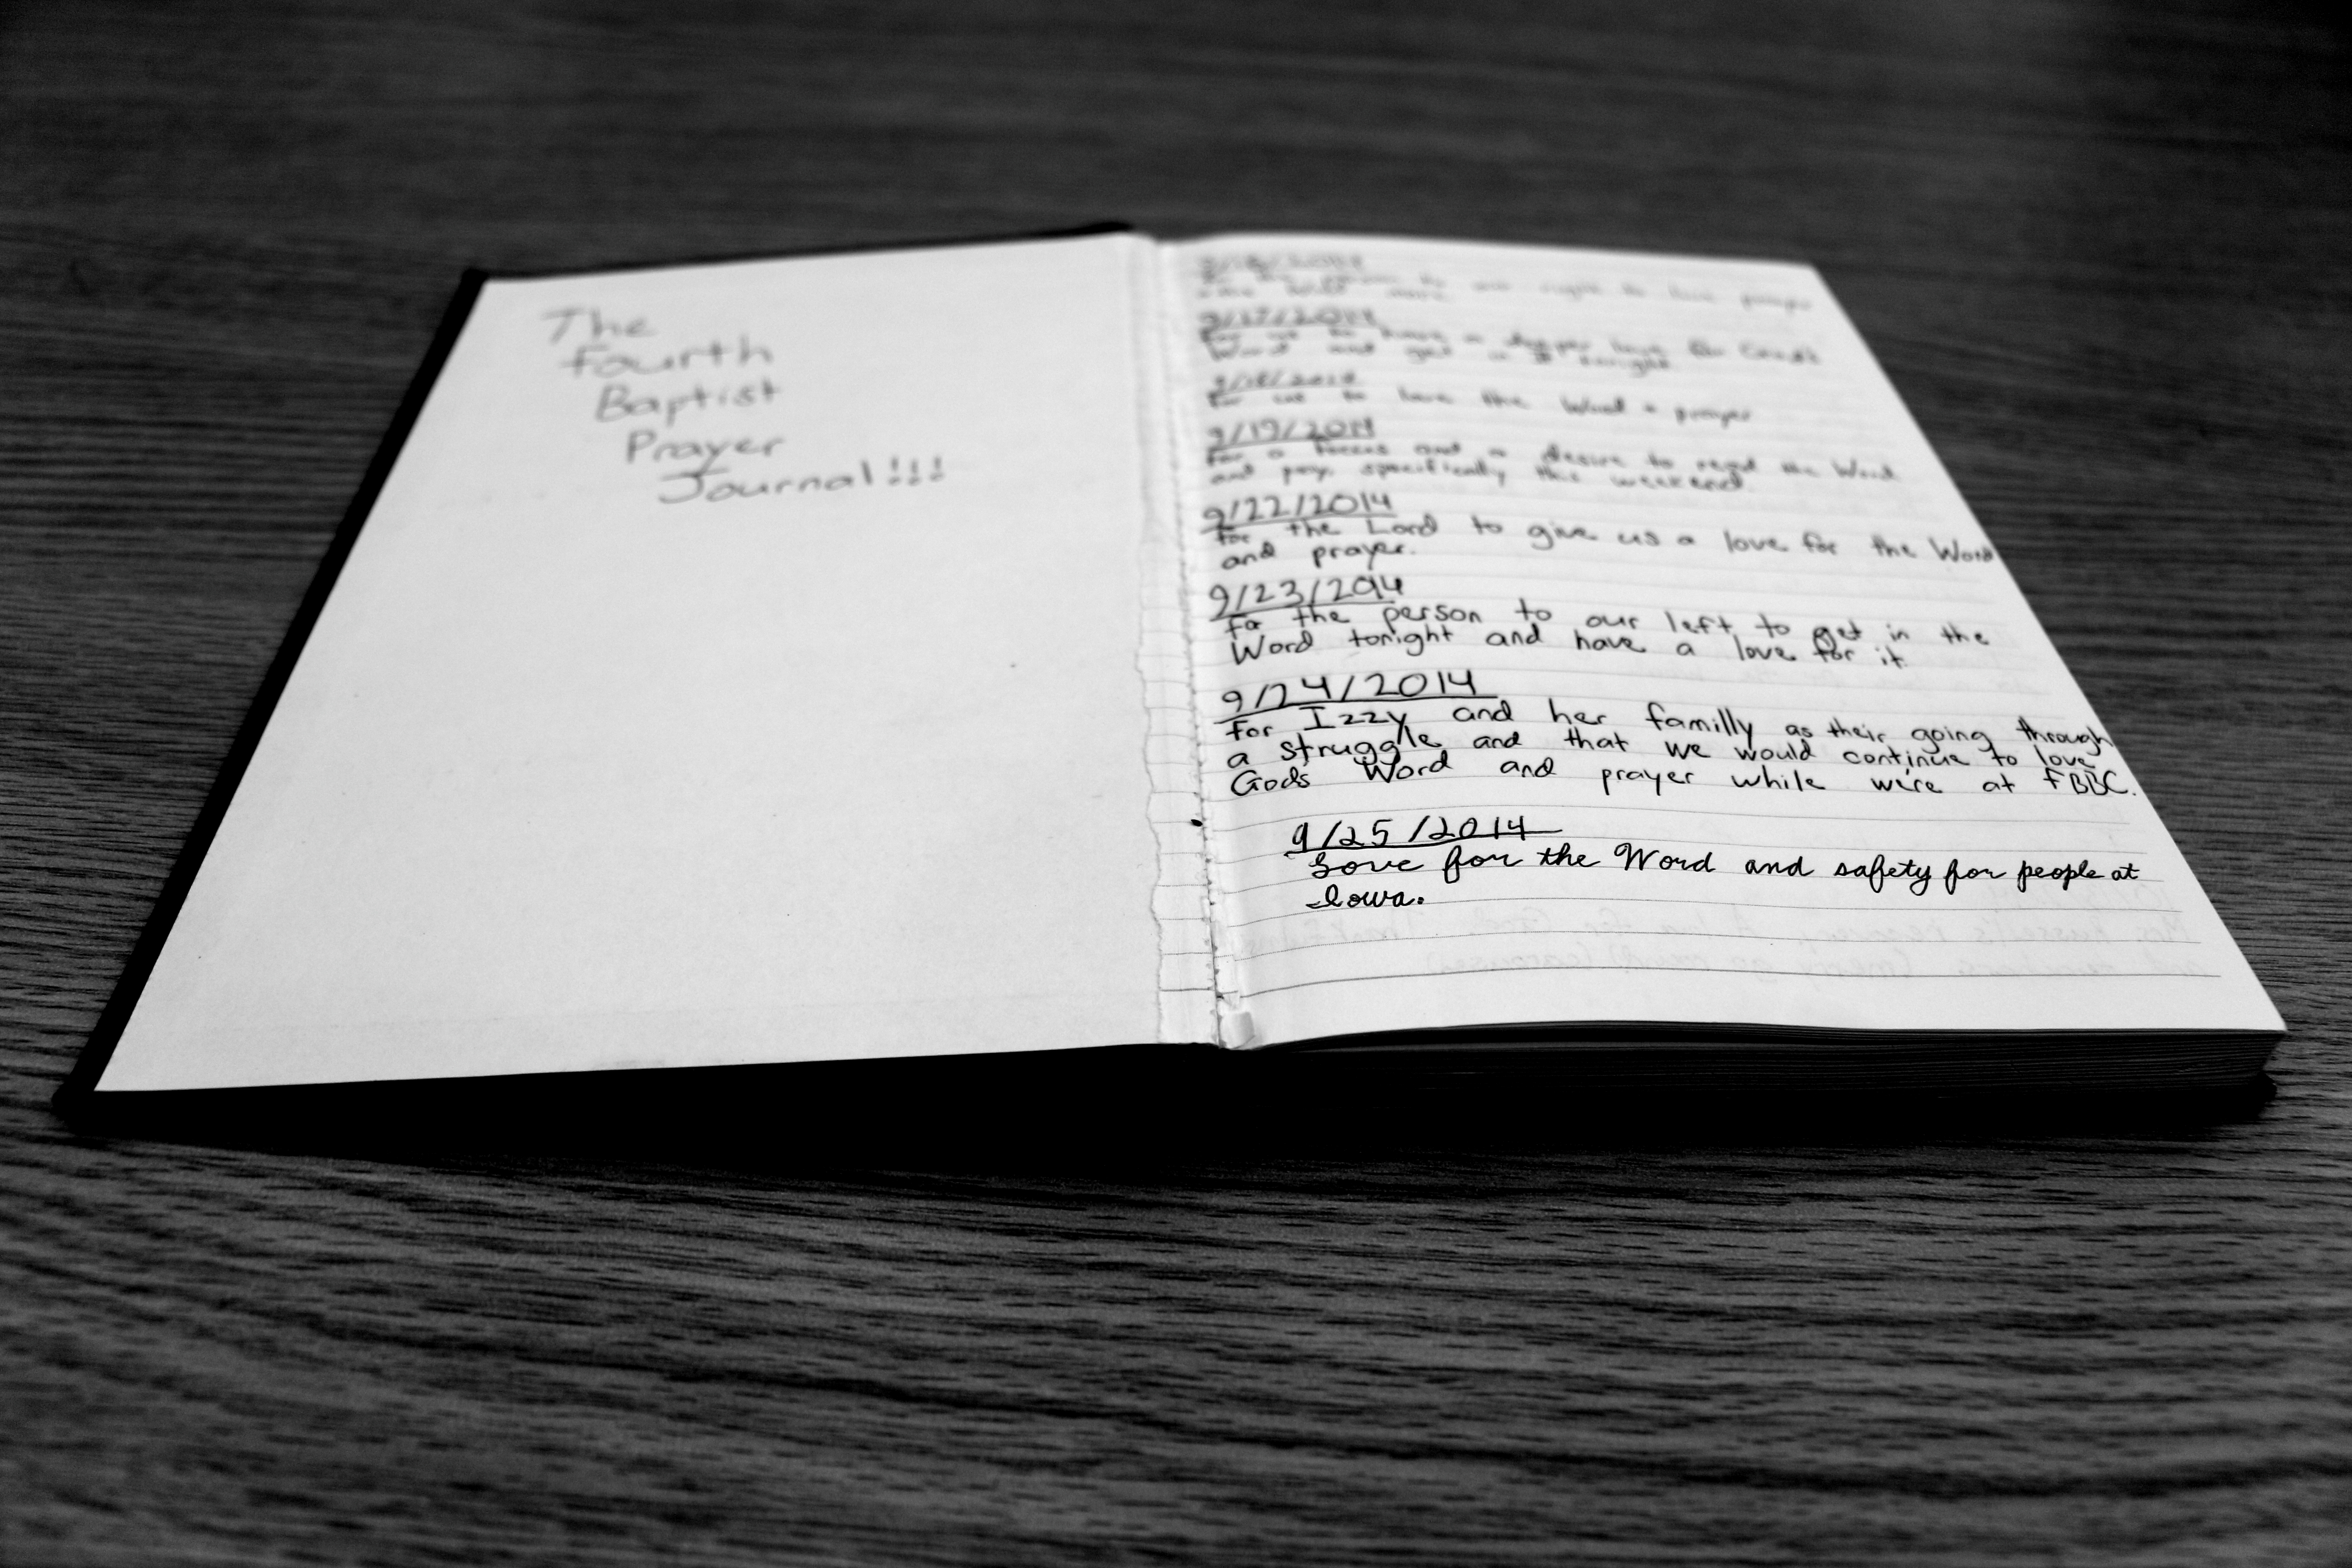 The
Fourth
Baptist
Prayer
Journal!!!
9/17/2014
For us to have a deeper love for God's
Word and get in it tonight.
9/18/2014
For us to love the Word + prayer
9/19/2014
For a focus and a desire to read the Word
and pray, specifically this weekend.
9/22/2014
for the Lord to give us a love for the Word
and prayer.
9/23/2014
for the person to our left to get in the
Word tonight and have a love for it.
9/24/2014
For Izzy and her familly as their going through
a struggle and that we would continue to love
Gods Word and prayer while we're at FBBC.
9/25/2014
Love for the Word and safety for people at
Iowa.